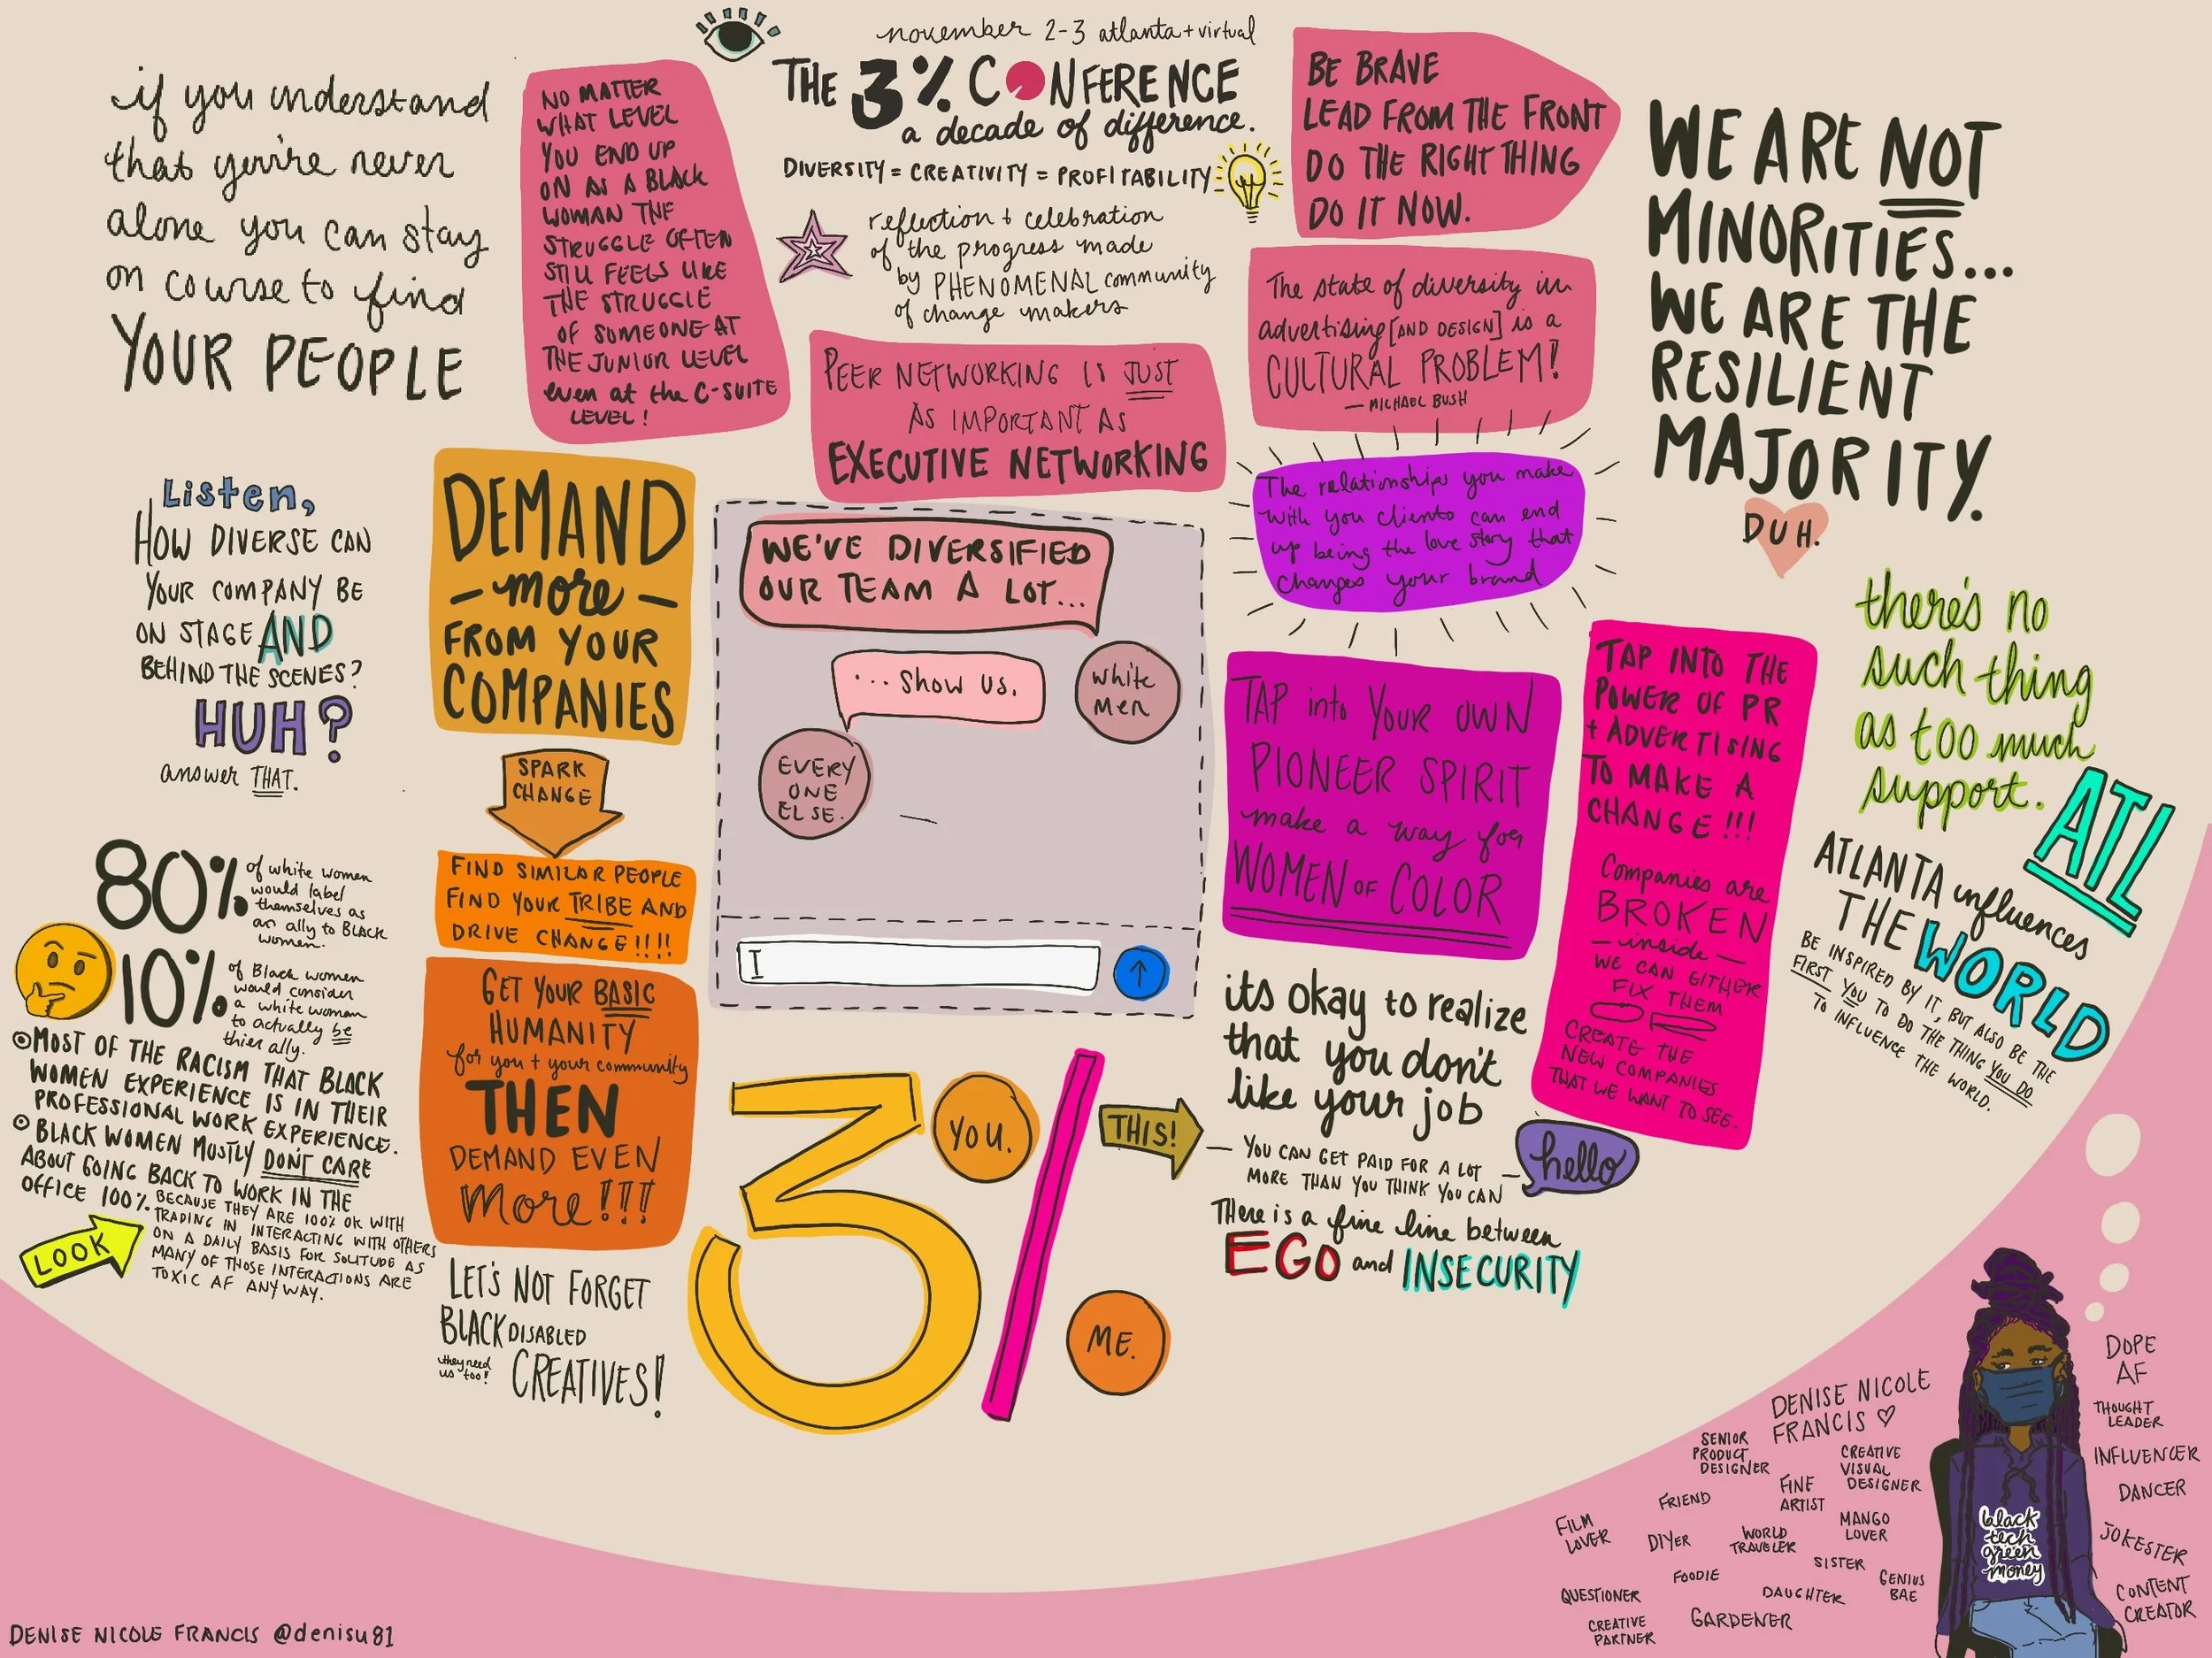 if you understand
that you're never
alone you can stay
on course to find
YOUR PEOPLE
NO MATTER
WHAT LEVEL
YOU END UP
ON AS A BLACK
WOMAN THE
STRUGGLE OFTEN
STILL FEELS LIKE
THE STRUGGLE
OF SOMEONE AT
THE JUNIOR LEVEL
even at the C-SUITE
LEVEL!
november 2-3 atlanta + virtual
THE 3% CONFERENCE
a decade of difference.
DIVERSITY = CREATIVITY = PROFITABILITY
reflection + celebration
of the progress made
by PHENOMENAL community
of change makers
PEER NETWORKING IS JUST
AS IMPORTANT AS
EXECUTIVE NETWORKING
BE BRAVE
LEAD FROM THE FRONT
DO THE RIGHT THING
DO IT NOW.
The state of diversity in
advertising [AND DESIGN] is a
CULTURAL PROBLEM!
— MICHAEL BUSH
The relationships you make
with you clients can end
up being the love story that
changes your brand
WE ARE NOT
MINORITIES...
WE ARE THE
RESILIENT
MAJORITY.
DUH.
Listen,
HOW DIVERSE CAN
YOUR COMPANY BE
ON STAGE AND
BEHIND THE SCENES?
HUH?
answer THAT.
DEMAND
— more —
FROM YOUR
COMPANIES
SPARK
CHANGE
FIND SIMILAR PEOPLE
FIND YOUR TRIBE AND
DRIVE CHANGE!!!!
GET YOUR BASIC
HUMANITY
for you + your community
THEN
DEMAND EVEN
More!!!
LET'S NOT FORGET
BLACK DISABLED
they need
us too!
CREATIVES!
WE'VE DIVERSIFIED
OUR TEAM A LOT...
white
men
... Show us.
EVERY
ONE
ELSE.
I
TAP into YOUR OWN
PIONEER SPIRIT
make a way for
WOMEN OF COLOR
TAP INTO THE
POWER OF PR
+ ADVERTISING
TO MAKE A
CHANGE!!!
Companies are
BROKEN
— inside —
WE CAN EITHER
FIX THEM
CREATE THE
NEW COMPANIES
THAT WE WANT TO SEE.
there's no
such thing
as too much
support.
ATL
ATLANTA influences
THE WORLD
BE INSPIRED BY IT, BUT ALSO BE THE
FIRST YOU TO DO THE THING YOU DO
TO INFLUENCE THE WORLD.
80%
of white women
would label
themselves as
an ally to BLACK
women.
10%
of Black women
would consider
a white woman
to actually be
thier ally.
MOST OF THE RACISM THAT BLACK
WOMEN EXPERIENCE IS IN THEIR
PROFESSIONAL WORK EXPERIENCE.
BLACK WOMEN MOSTLY DON'T CARE
ABOUT GOING BACK TO WORK IN THE
OFFICE 100%.
BECAUSE THEY ARE 100% OK WITH
TRADING IN INTERACTING WITH OTHERS
ON A DAILY BASIS FOR SOLITUDE AS
MANY OF THOSE INTERACTIONS ARE
TOXIC AF ANYWAY.
LOOK
3%
YOU.
ME.
THIS!
its okay to realize
that you don't
like your job
— YOU CAN GET PAID FOR A LOT —
MORE THAN YOU THINK YOU CAN
hello
THere is a fine line between
EGO and INSECURITY
DENISE NICOLE
FRANCIS
SENIOR
PRODUCT
DESIGNER
CREATIVE
VISUAL
DESIGNER
FINE
ARTIST
FRIEND
FILM
LOVER
DIYER
WORLD
TRAVELER
MANGO
LOVER
SISTER
FOODIE
GENIUS
BAE
QUESTIONER
DAUGHTER
CREATIVE
PARTNER
GARDENER
DOPE
AF
THOUGHT
LEADER
INFLUENCER
DANCER
JOKESTER
CONTENT
CREATOR
black
tech
green
money
DENISE NICOLE FRANCIS @denisu81